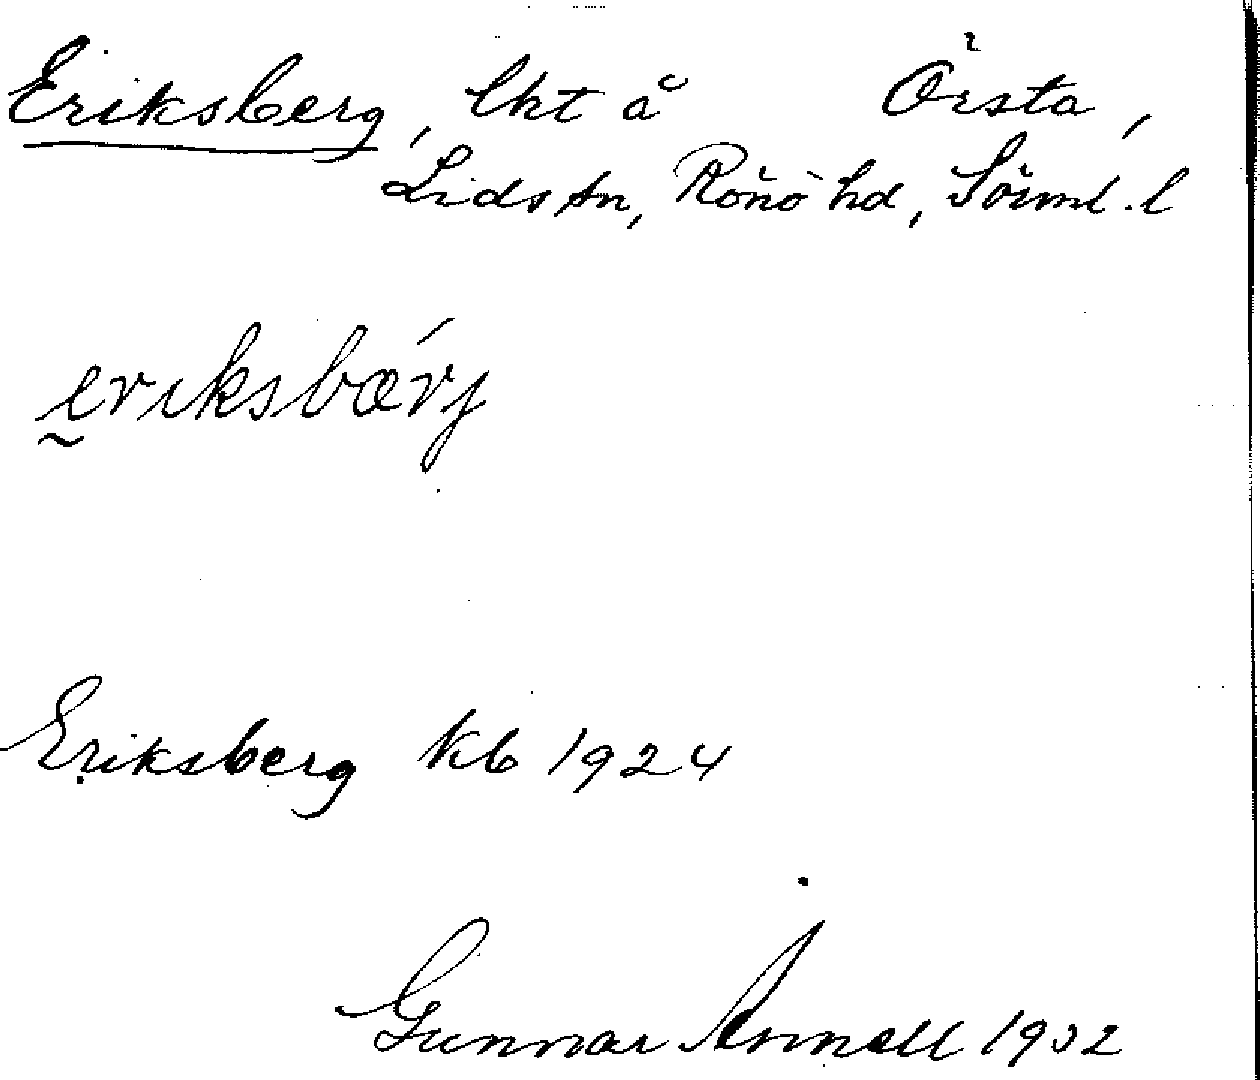 Eriksberg, lht å Örsta,
Lids sn, Rönö hd, Söiml. l
eriksbærj
Eriksberg kb 1924
Gunnar 1932